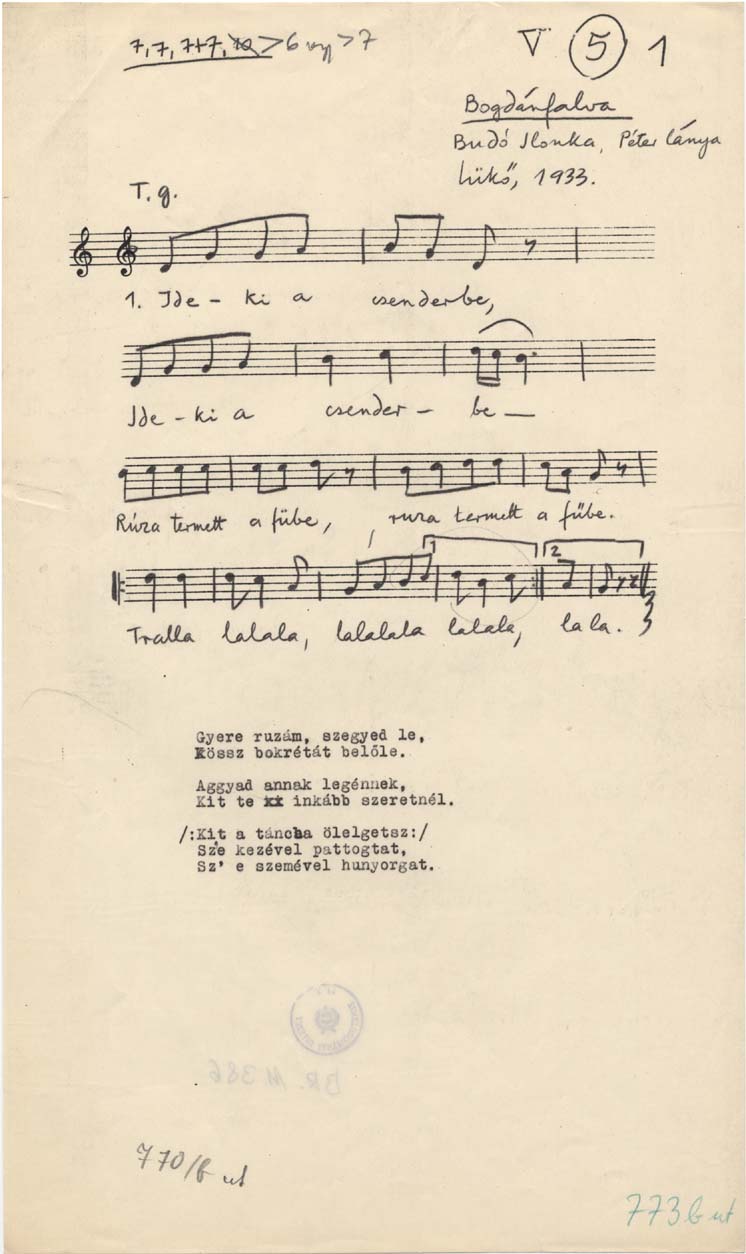 7, 7, 7+7, 10 > 6 vy > 7
V 5 1
Bogdánfalva
Budó Ilonka, Péter lánya
Lükő, 1933.
T. g.
1. Ide - ki a csenderbe,
Ide - ki a csender - be —
Rúza termett a fübe, ruza termett a fűbe.
1 2
Tralla lalala, lalalala lalala, la la.
Gyere ruzám, szegyed le,
Kössz bokrétát belőle.
Aggyad annak legénnek,
Kit te inkább szeretnél.
/:Kit a táncba ölelgetsz:/
Sz'e kezével pattogtat,
Sz' e szemével hunyorgat.
BR. M 386
770/b ut
773 b ut